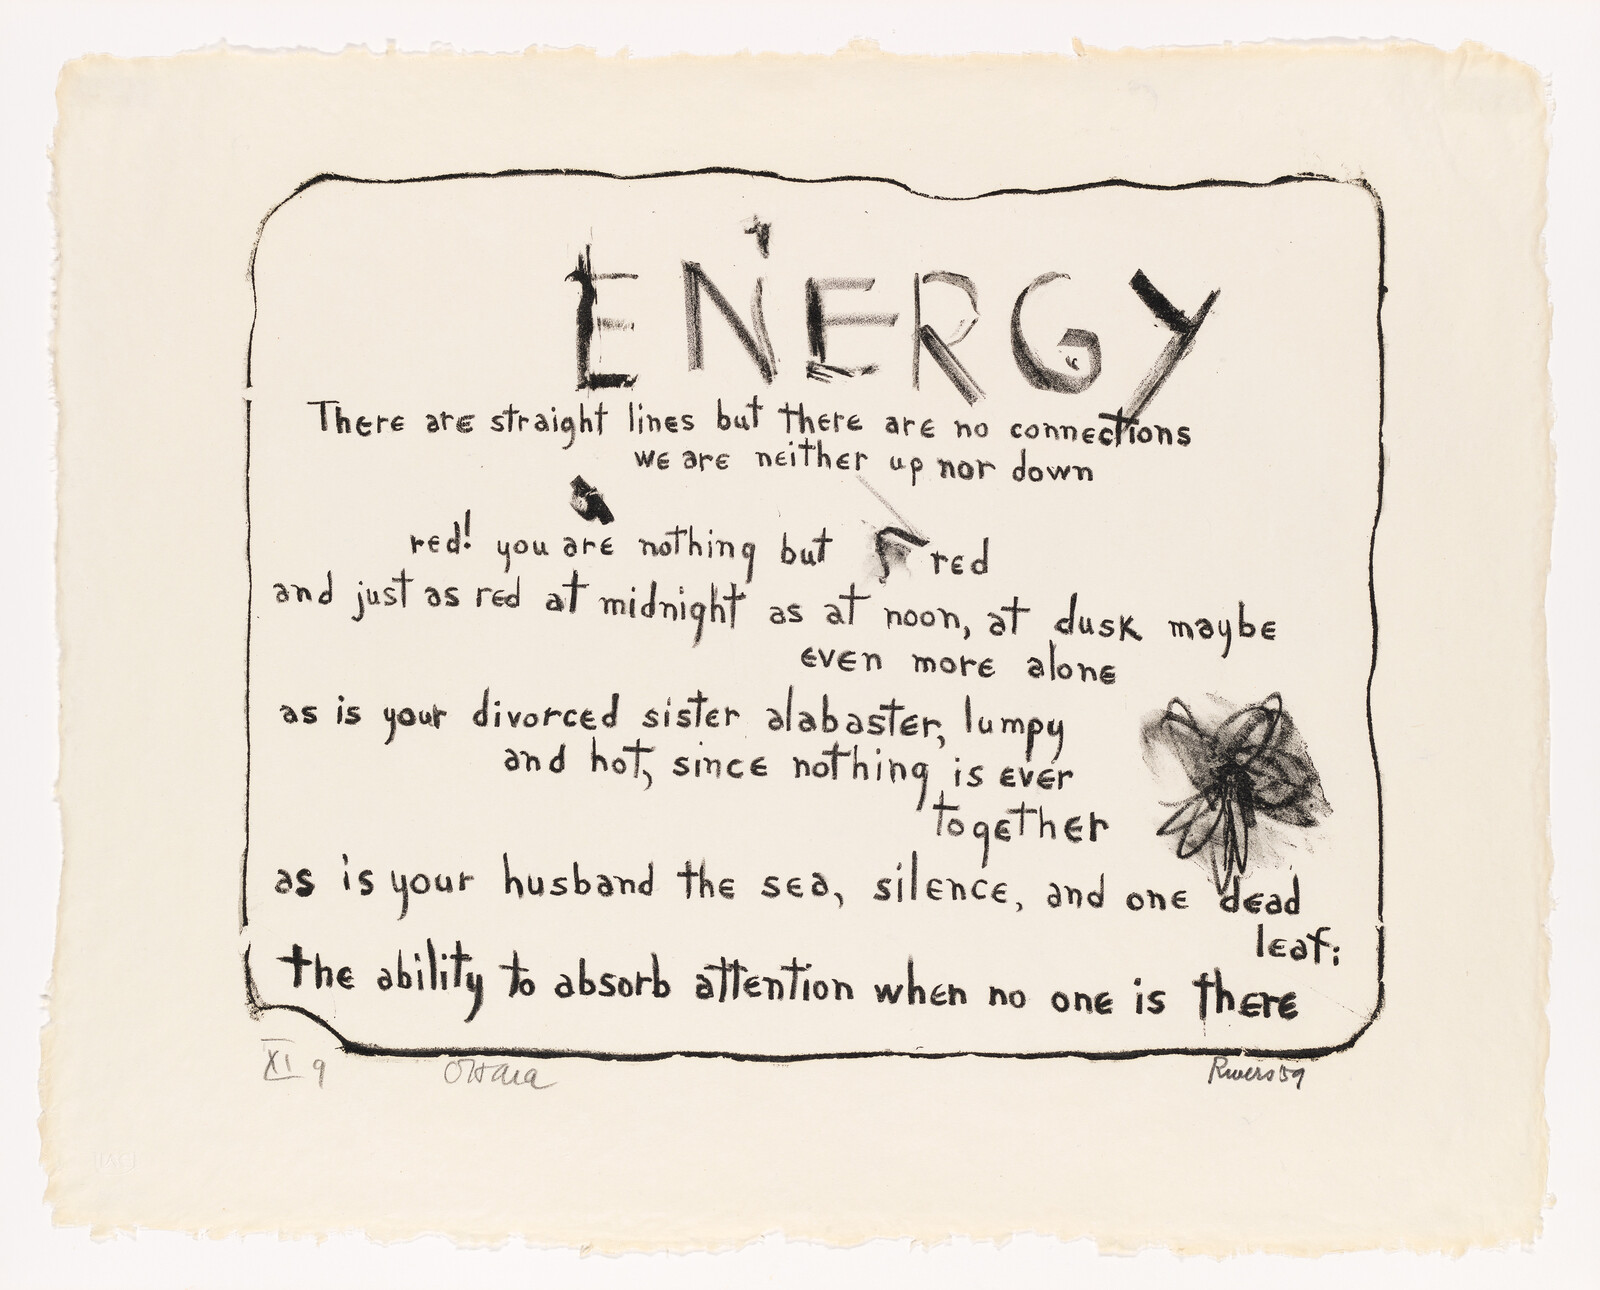 ENERGY
There are straight lines but there are no connections
we are neither up nor down
red! you are nothing but red
and just as red at midnight as at noon, at dusk maybe
even more alone
as is your divorced sister alabaster, lumpy
and hot, since nothing is ever
together
as is your husband the sea, silence, and one dead
leaf:
the ability to absorb attention when no one is there
XI 9 O'Hara Rivers '59